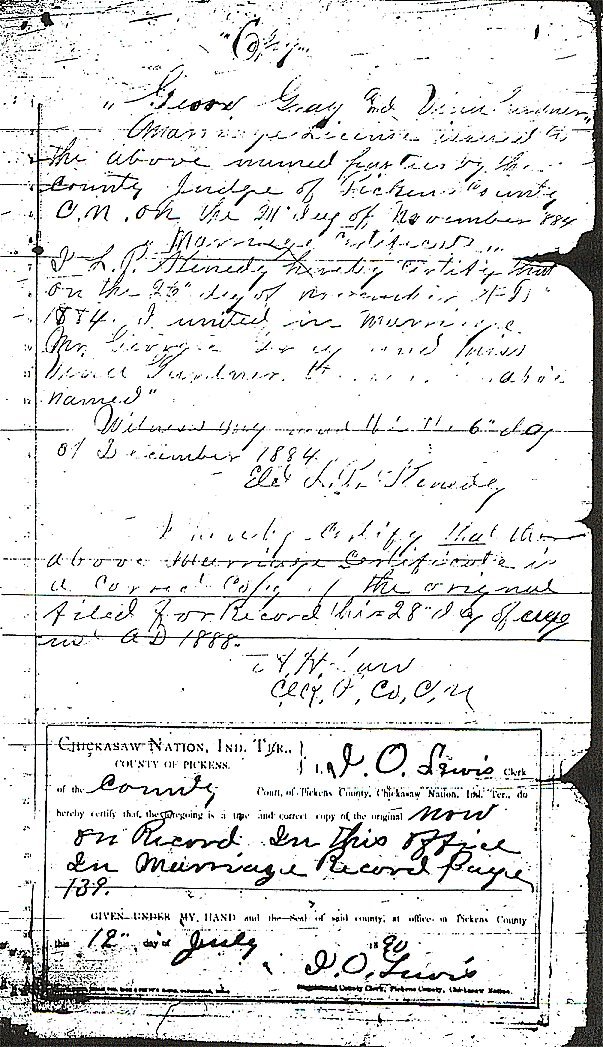 "Copy"
"George Gray and Vina Gardner"
A Marriage License issued to
the above named parties by the
County Judge of Pickens County
C.N. on the 21st day of November 1884
"Marriage Certificate"
I L. P. Kenedy hereby certify that
on the 23rd day of November A D
1884. I united in marriage
Mr George Gray and Miss
Gardner above
named"
Witness my hand this the 6th day
of December 1884
Kenedy
I hereby Certify that the
above Marriage Certificate is
a Correct Copy of the original
filed for Record this 28th day of Aug
ust A D 1888.
Clk. P. Co, C, N
CHICKASAW NATION, IND. TER.,
COUNTY OF PICKENS.
I, J. O. Lewis Clerk
of the County Court, of Pickens County, Chickasaw Nation, Ind. Ter., do
hereby certify that the foregoing is a true and correct copy of the original now
on Record In this office
In Marriage Record Page
139.
GIVEN UNDER MY HAND and the Seal of said county, at office in Pickens County
this 12" day of July 1890
J. O. Lewis
County Clerk, Pickens County, Chickasaw Nation.